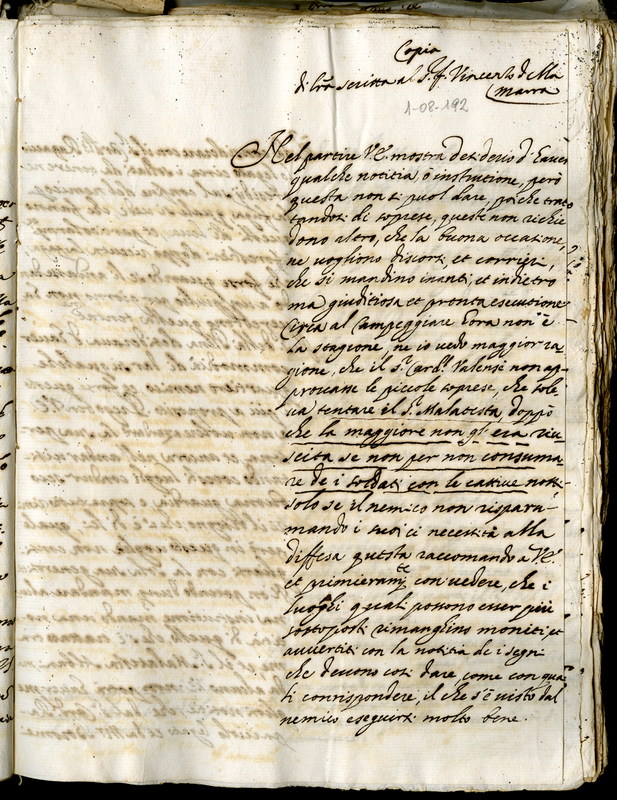 Copia
di lrã scritta al S.r f. Vincenzo della
Marra
1-08-192
Nel partire V.E. mostra desiderio d'haver
qualche notitia ò instrutione, però
questa non si puol dare, poiche trat
tandosi di soprese, queste non richie
dono altro, che la buona occasione,
ne vogliono discorsi, et corrieri,
che si mandino inanti, et indietro
ma giuditiosa et pronta esecutione
Circa al Campeggiare hora non è
la stagione, ne io vedo maggior ra
gione, che il S.r Card.l Valensè non ap-
provasse le piccole soprese, che sole
va tentare il S.r Malatesta doppò
che la maggiore non gl'era riu
scita se non per non consuma
re de i soldati con le cattive notti
solo se il nemico non rispara-
mando i suoi ci necessita alla
diffesa questa raccomando a V.E.
et primieram.te con vedere, che i
luoghi quali possono esser più
sottoposti rimanghino moniti, et
avvertiti con la notitia de i segni
che devono così dare come con qua
li corrispondere, il che s'è visto dal
nemico eseguirsi molto bene.